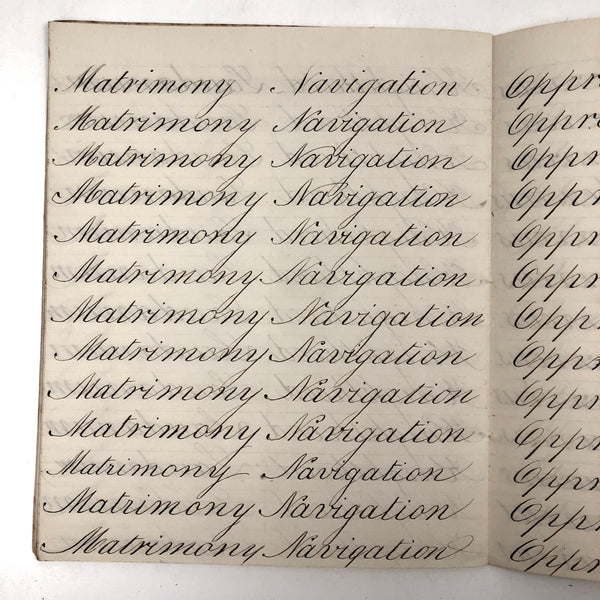 Matrimony Navigation
Matrimony Navigation
Matrimony Navigation
Matrimony Navigation
Matrimony Navigation
Matrimony Navigation
Matrimony Navigation
Matrimony Navigation
Matrimony Navigation
Matrimony Navigation
Matrimony Navigation
Matrimony Navigation
Matrimony Navigation